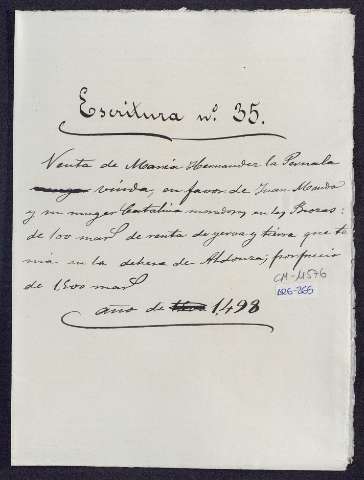 Escritura nº. 35.
Venta de María Hernandez la Pernala
muger viuda, en favor de Juan
y su muger Catalina moradores en las Brozas:
de 100 mars de renta de yerva y tierra que te
nia en la dehesa de Aldonza; por precio
de 1,500 mars
CM-11576
año de 1498